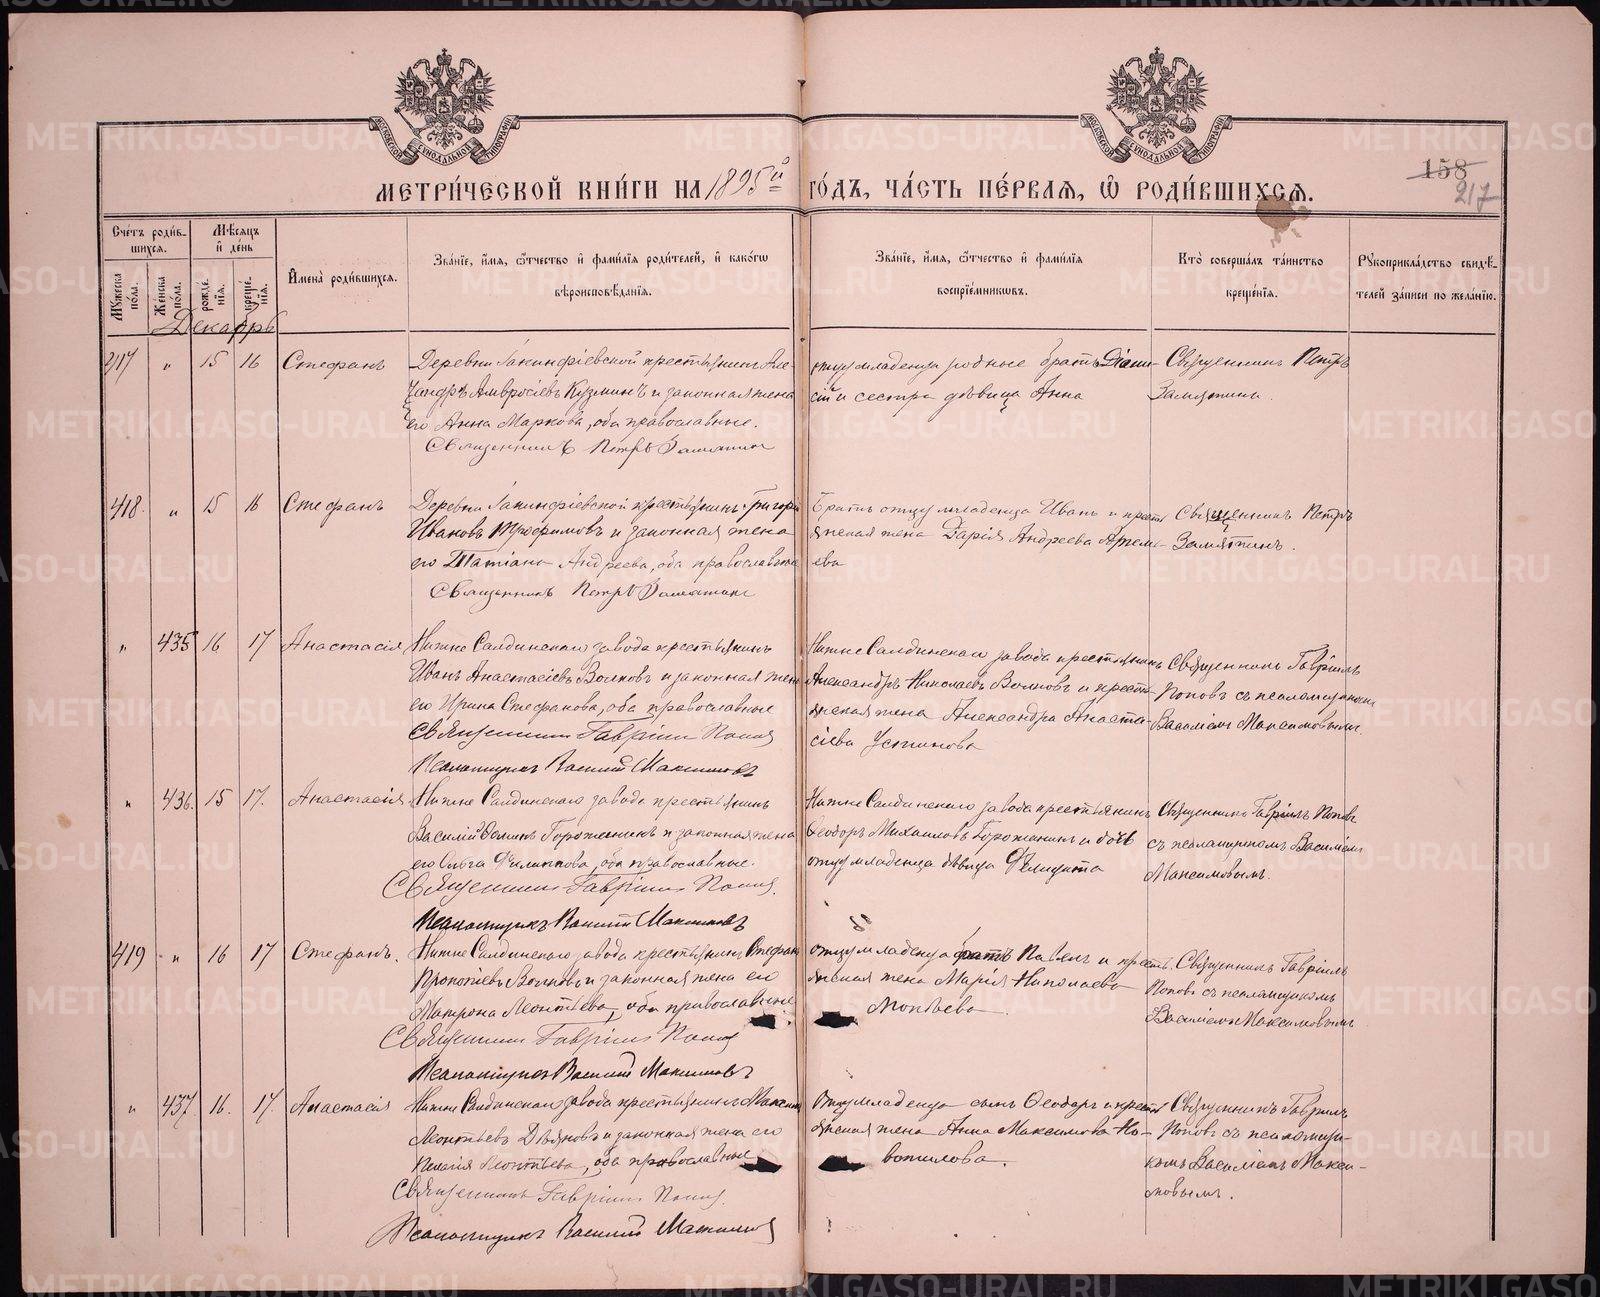 МЕТРИ́ЧЕСКОЙ КНИ́ГИ НА 1895й ГО́ДЪ, ЧА́СТЬ ПЕ́РВАЯ, Ѽ РОДИ́ВШИХСЯ.
158
217
Сче́тъ роди́в-
шихся.
Мѣ́сяцъ
и҆ де́нь
Му́жеска
по́ла.
Же́нска
по́ла.
рожде́-
нїя.
креще́-
нїя.
И҆мена̀ роди́вшихся.
Зва́нїе, и҆́мя, ѻ҆́тчество и҆ фами́лїя роди́телей, и҆ како́гѡ
вѣроисповѣ́данїя.
Зва́нїе, и҆́мя, ѻ҆́тчество и҆ фами́лїя
воспрїе́мникѡвъ.
Кто̀ соверша́лъ та́инство
креще́нїя.
Рꙋкоприкла́дство свидѣ́-
телей за́писи по жела́нїю.
Декабрь
417 " 15 16 Стефанъ
Деревни Іакинфіевской крестьянинъ Але-
ксандръ Амвросіевъ Кузминъ и законная жена
его Анна Маркова, оба православные.
Священникъ Петръ Замятинъ
отцу младенца родные братъ Діони-
сій и сестра дѣвица Анна
Священникъ Петръ
Замятинъ.
418. " 15 16 Стефанъ
Деревни Іакинфіевской крестьянинъ Григорій
Ивановъ Трофимовъ и законная жена
его Татіана Андреева, оба православные
Священникъ Петръ Замятинъ
Братъ отцу младенца Иванъ и кресть
янская жена Дарія Андреева Артемь-
ева
Священникъ Петръ
Замятинъ.
" 435 16 17 Анастасія
Нижне Салдинскаго завода крестьянинъ
Иванъ Анастасіевъ Волковъ и законная жена
его Ирина Стефанова, оба православные
Священникъ Гавріилъ Поповъ
Псаломщикъ Василій Максимовъ
Нижне Салдинскаго завода крестьянинъ
Александръ Николаевъ Волковъ и кресть
янская жена Александра Анаста-
сіева Устинова
Священникъ Гавріилъ
Поповъ съ псаломщикомъ
Василіемъ Максимовымъ.
" 436. 15 17. Анастасія
Нижне Салдинскаго завода крестьянинъ
Василій Ѳоминъ Гороженинъ и законная жена
его Ольга Филиппова, оба православные.
Священникъ Гавріилъ Поповъ.
Псаломщикъ Василій Максимовъ
Нижне Салдинскаго завода крестьянинъ
Ѳеодоръ Михаиловъ Гороженинъ и дочь
отцу младенца дѣвица Фелицата
Священникъ Гавріилъ Поповъ
съ псаломщикомъ Василіемъ
Максимовымъ.
419 " 16 17 Стефанъ.
Нижне Салдинскаго завода крестьянинъ Стефанъ
Прокопіевъ Волковъ и законная жена его
Матрона Леонтьева, оба православные
Священникъ Гавріилъ Поповъ
Псаломщикъ Василій Максимовъ
отцу младенца братъ Павелъ и кресть
янская жена Марія Николаева
Священникъ Гавріилъ
Поповъ съ псаломщикомъ
Василіемъ Максимовымъ
" 437. 16. 17. Анастасія
Нижне Салдинскаго завода крестьянинъ Максимъ
Леонтьевъ и законная жена его
Пелагія Леонтьева, оба православные
Священникъ Гавріилъ Поповъ.
Псаломщикъ Василій Максимовъ
Отцу младенца сынъ Ѳеодоръ и кресть
янская жена Анна Максимова Но-
вожилова.
Священникъ Гавріилъ
Поповъ съ псаломщи-
комъ Василіемъ Макси-
мовымъ.
METRIKI.GASO-URAL.RU